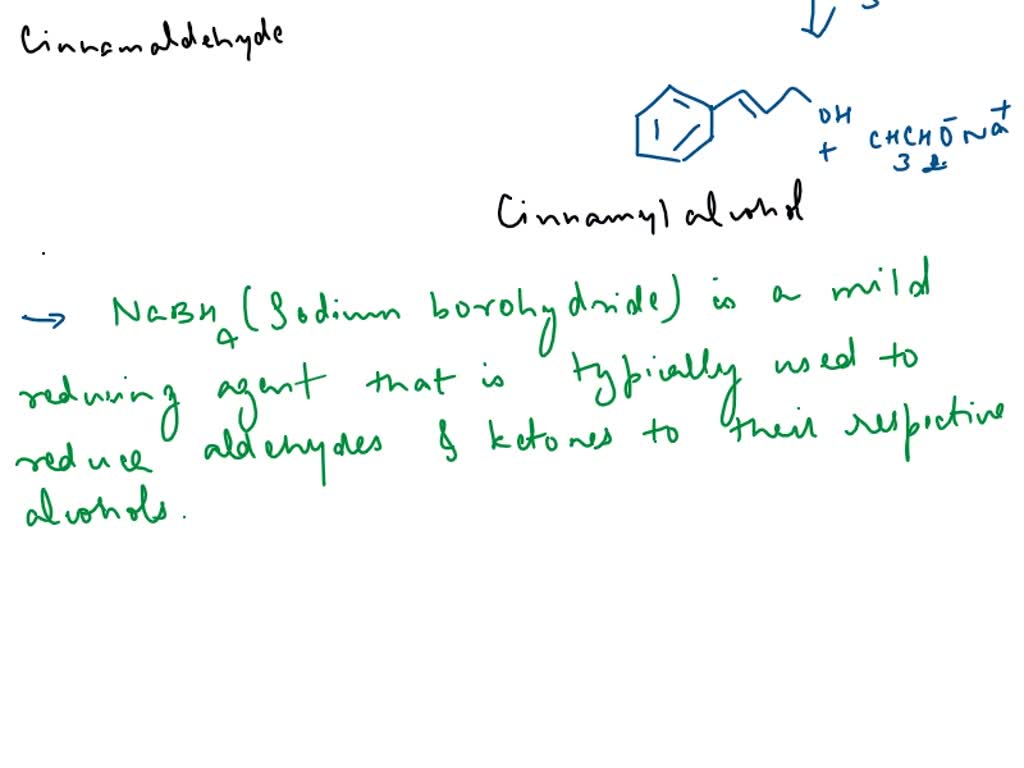 Cinnamaldehyde
OH
+ CH3CH2O⁻Na⁺
Cinnamyl alcohol
→ NaBH4 (Sodium borohydride) is a mild
reducing agent that is typically used to
reduce aldehydes & ketones to their respective
alcohols.